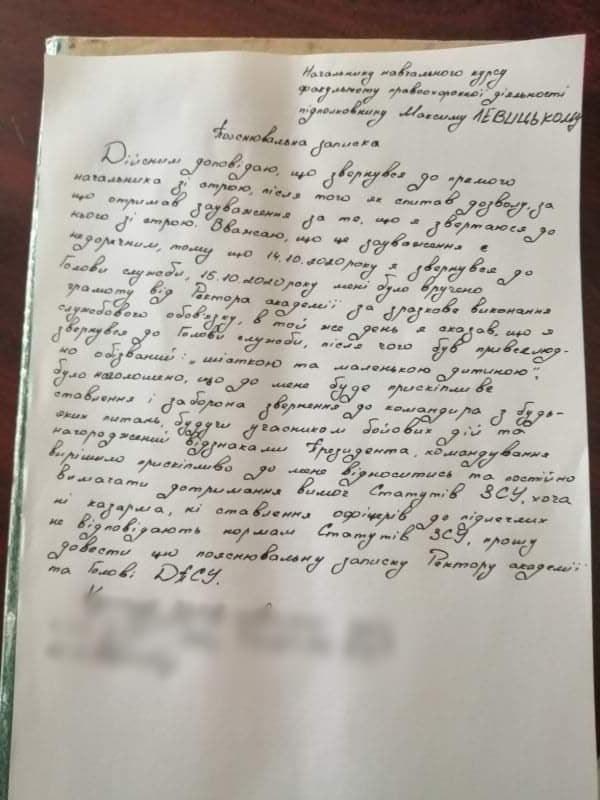 Начальнику навчального курсу
факультету правоохоронної діяльності
підполковнику Максиму ЛЕВИЦЬКОМУ
Пояснювальна записка
Дійсним доповідаю, що звернувся до прямого
начальника зі строю, після того як спитав дозволу, за
що отримав зауваження за те, що я звертаюся до
нього зі строю. Вважаю, що це зауваження є
недоречним, тому що 14.10.2020 року я звернувся до
Голови служби, 15.10.2020 року мені було вручено
грамоту від Ректора академії за зразкове виконання
службового обов'язку, в той же день я сказав, що я
звернувся до Голови служби, після чого був привселюд-
но обізваний: „шісткою та маленькою дитиною",
було наголошено, що до мене буде прискіпливе
ставлення і заборона звернення до командира з будь-
яких питань, будучи учасником бойових дій та
нагороджений відзнаками Президента, командування
вирішило прискіпливо до мене відноситись та постійно
вимагати дотримання вимог Статутів ЗСУ, хоча
ні казарма, ні ставлення офіцерів до підлеглих
не відповідають нормам Статутів ЗСУ, прошу
довести цю пояснювальну записку Ректору академії
та Голові ДПСУ.